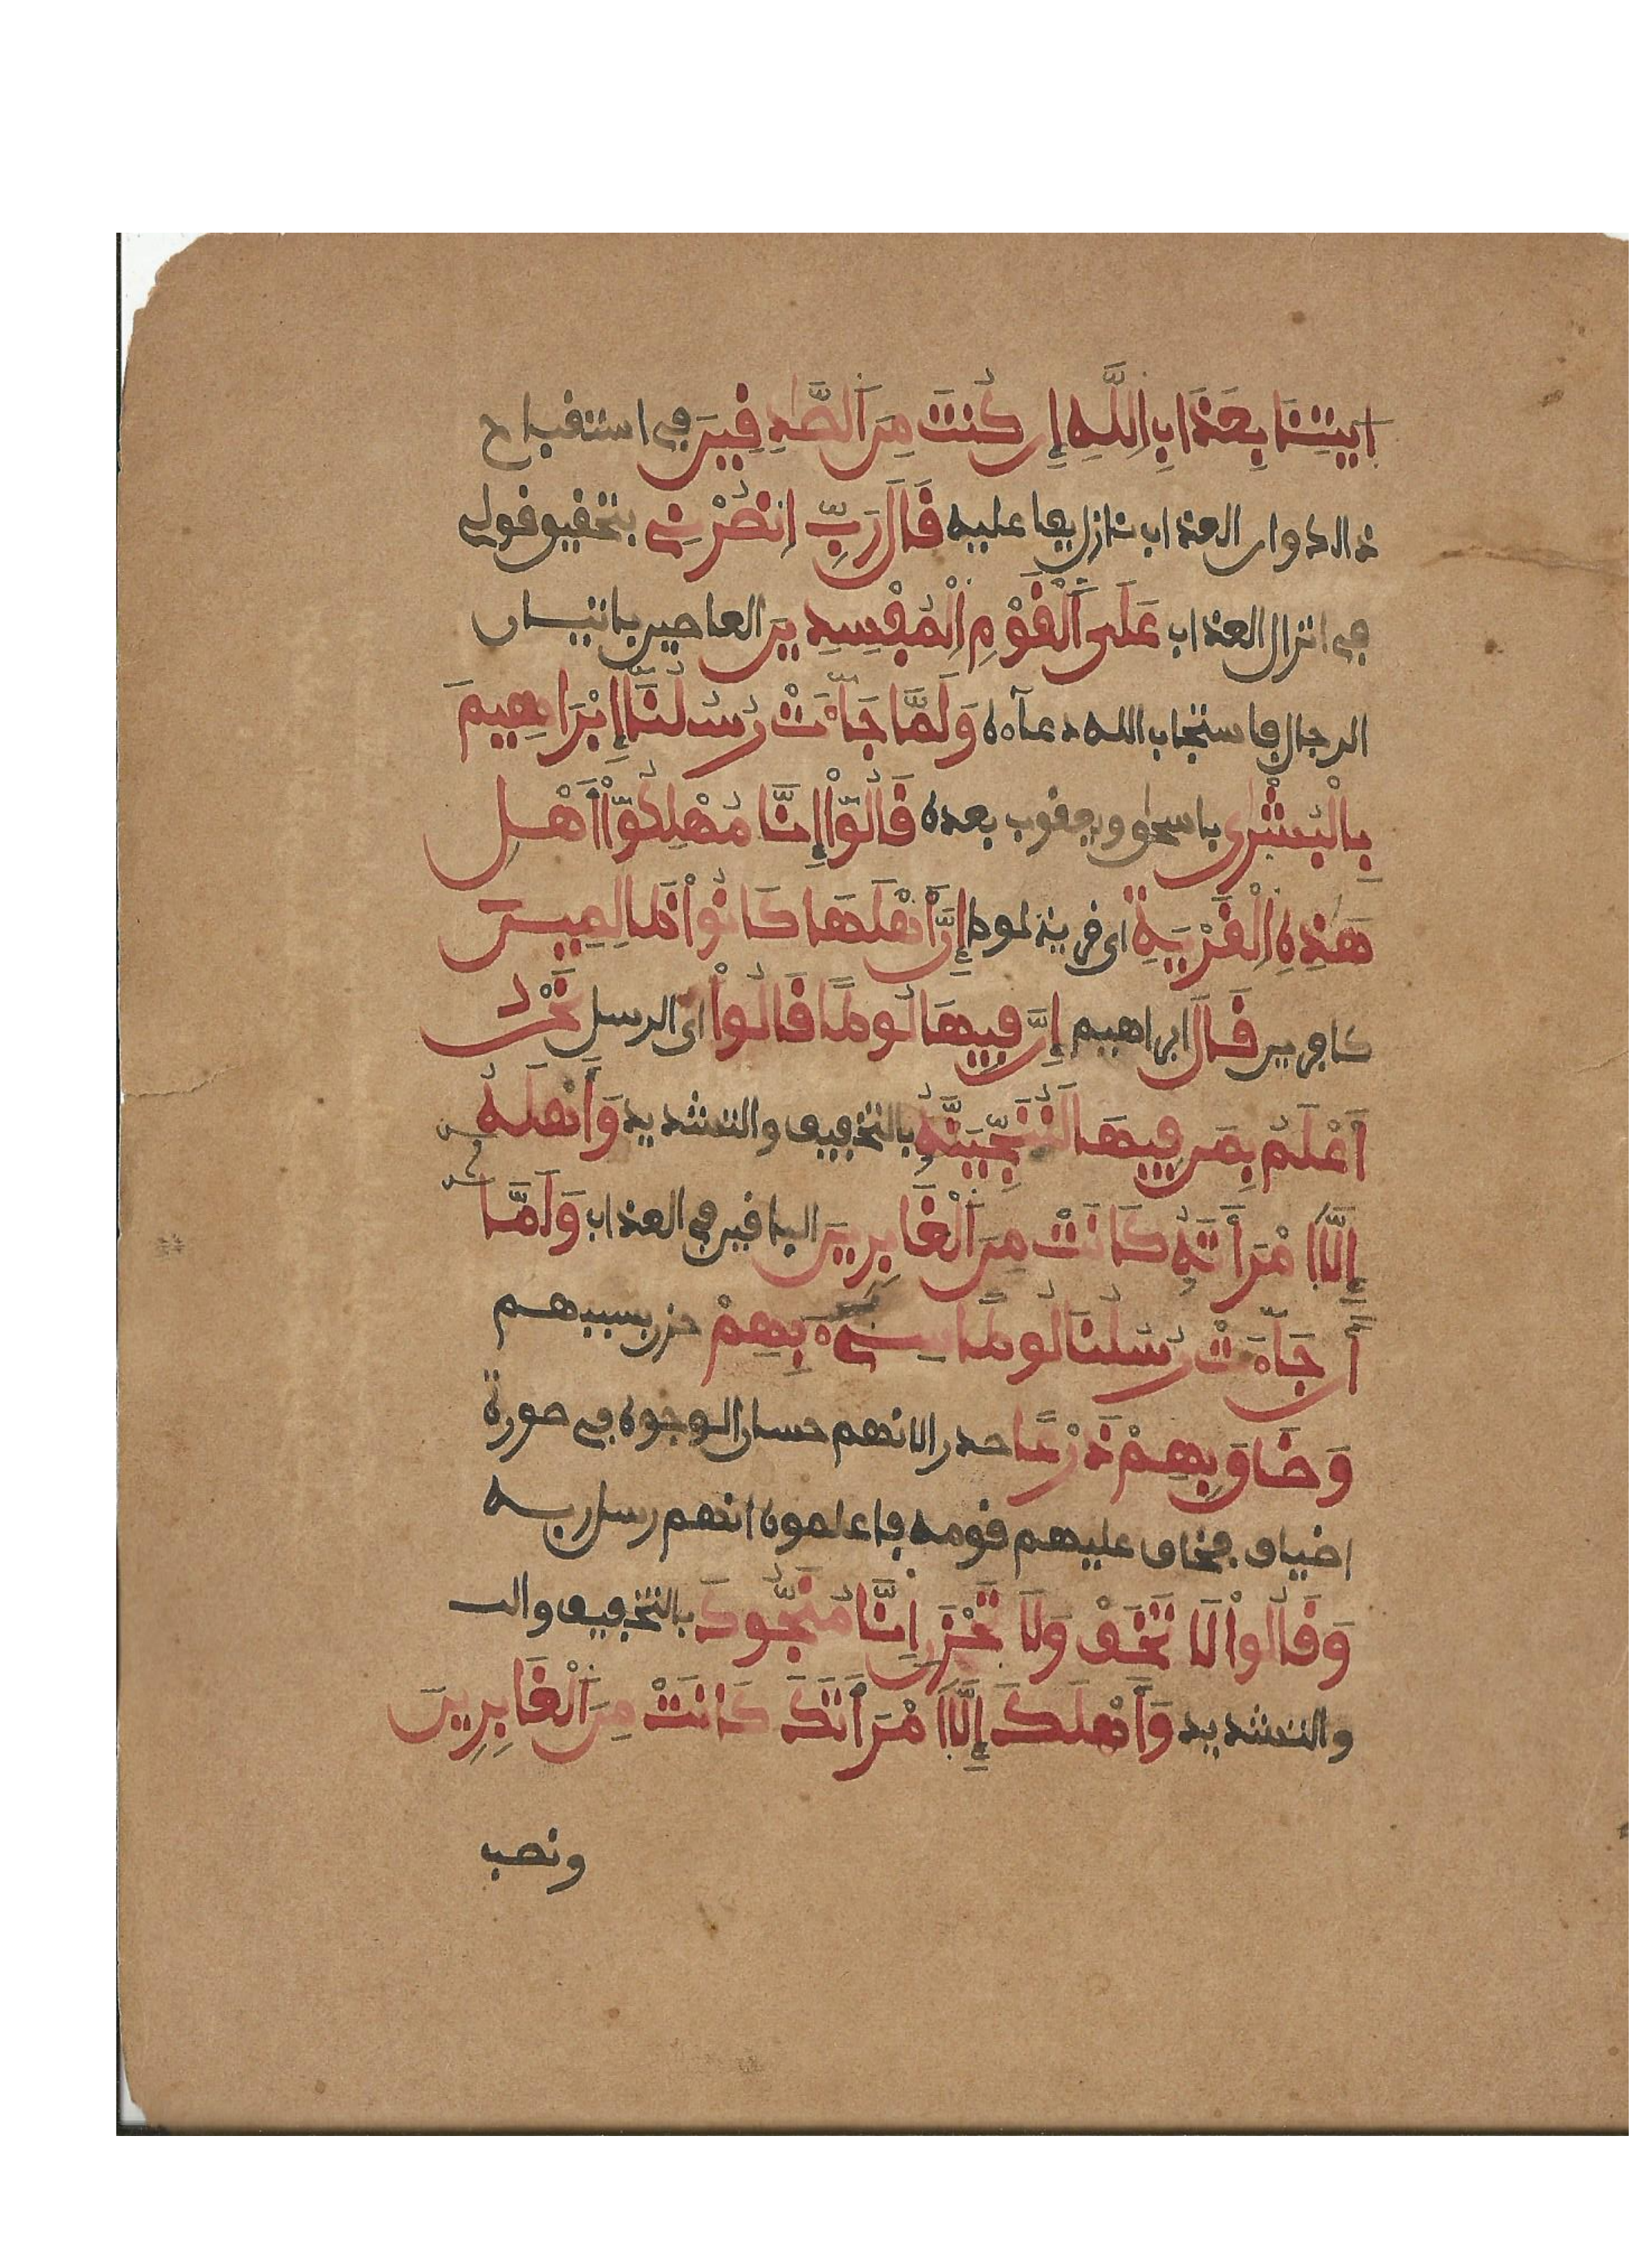 اِيتِنَا بِعَذَابِ اِللَّهِ إِن كُنتَ مِنَ اَلصَّدِفِينَ في استفباح
ذالك وان العذاب نازل بفاعليه فَالَ رَبِّ اِنصُرْنِے بتحفيو فولي
في انزال العذاب عَلَى اَلْفَوْمِ اِلْمُفْسِدِينَ العاصين باتيان
الرجال فاستجاب الله دعاءه وَلَمَّا جَآءَتْ رُسُلُنَآ إِبْرَاهِيمَ
بِالْبُشْرٰى باسحٰو ويعفوب بعده فَالُوٓاْ إِنَّا مُهْلِكُوٓاْ أَهْلِ
هَٰذِهِ اِلْفَرْيَةِ اى فرية لوط إِنَّ أَهْلَهَا كَانُواْ ظَالِمِينَ
كافرين فَالَ ابراهيم إِنَّ فِيهَا لُوطًا فَالُواْ اى الرسل نَحْنُ
أَعْلَمُ بِمَن فِيهَا لَنُنَجِّيَنَّهُۥ بالتخفيف والتشديد وَأَهْلَهُۥ
إِلَّا اَمْرَأَتَهُۥ كَانَتْ مِنَ اَلْغَابِرِينَ البافين في العذاب وَلَمَّا
أَن جَآءَتْ رُسُلُنَا لُوطًا سِيٓءَ بِهِمْ حزن بسببهم
وَضَاوَ بِهِمْ ذَرْعًا صدرا لانهم حسان الوجوه في صورة
اضياف فخاف عليهم فومه فاعلموه انهم رسل ربه
وَفَالُواْ لَا تَخَفْ وَلَا تَحْزَنِ اِنَّا مُنَجُّوكَ بالتخفيف والت
والتشديد وَأَهْلَكَ إِلَّا اَمْرَأَتَكَ كَانَتْ مِنَ اَلْغَابِرِينَ
ونصب